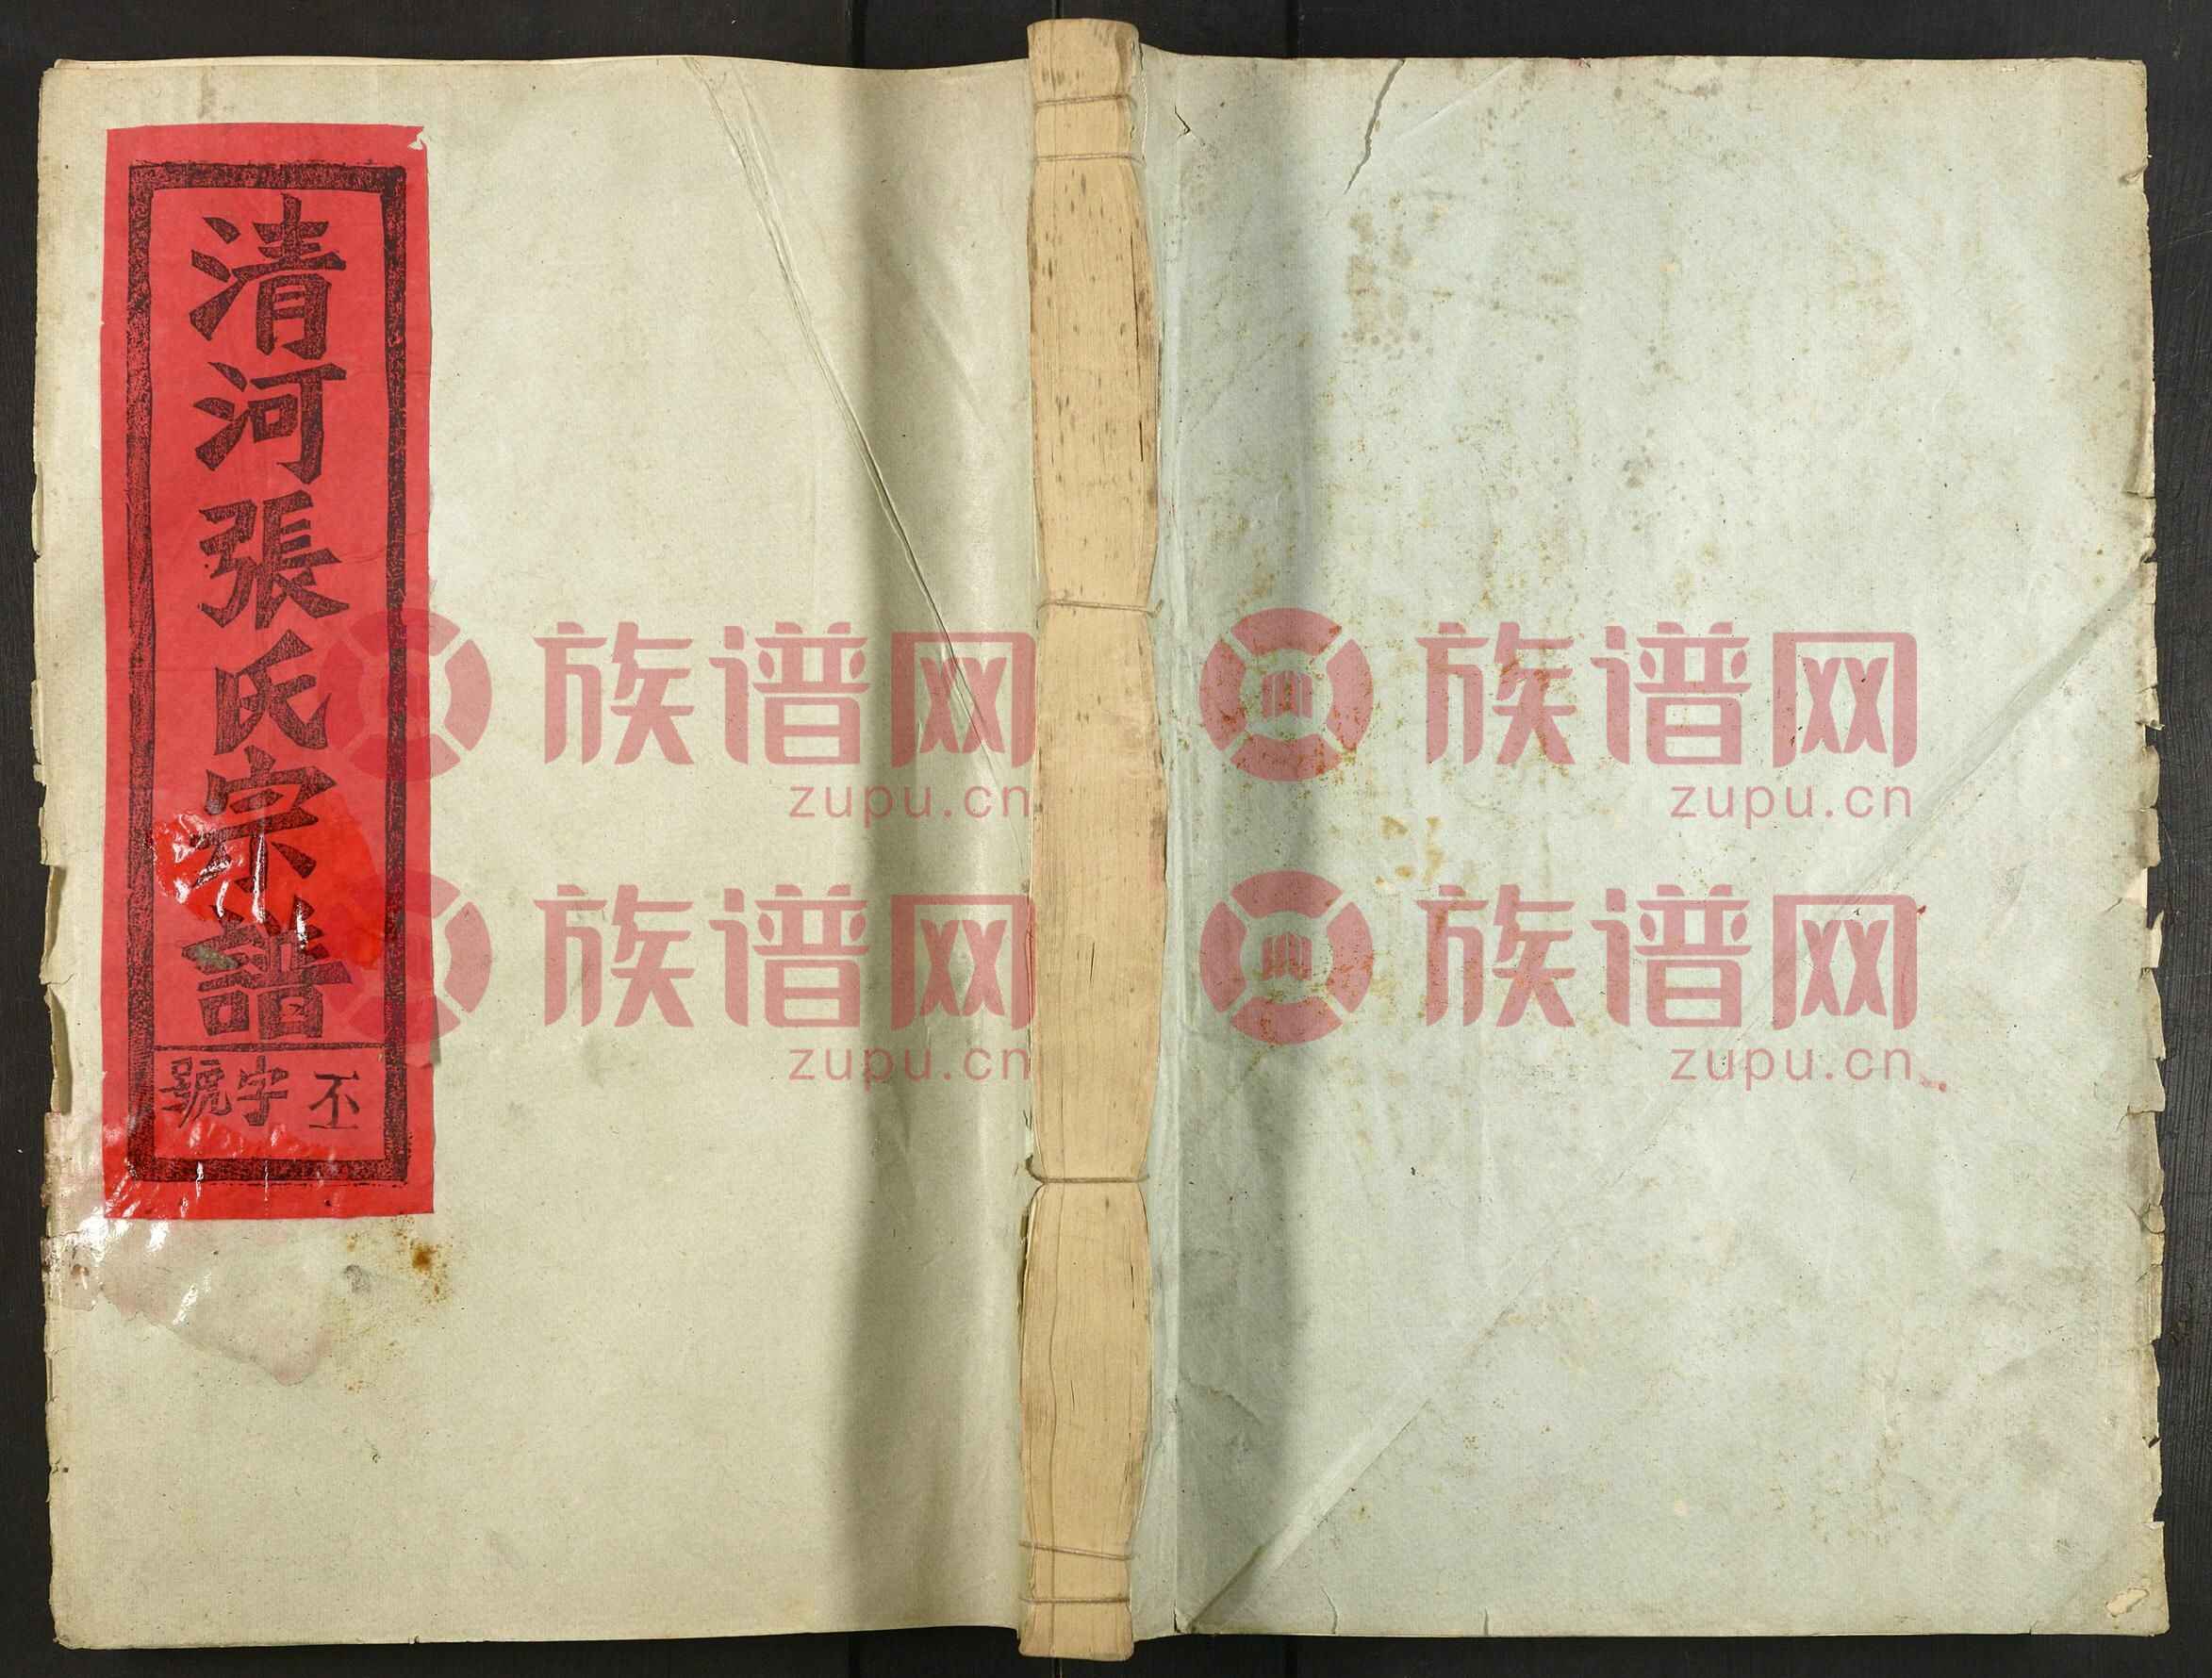 清河張氏宗譜
丕字號
族谱网
zupu.cn
族谱网
zupu.cn
族谱网
zupu.cn
族谱网
zupu.cn